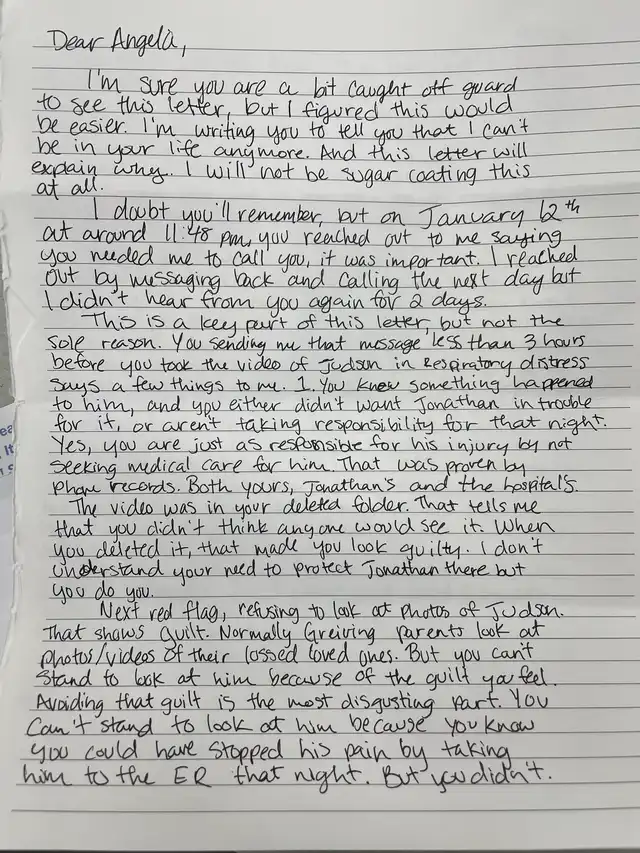 Dear Angela,
I'm sure you are a bit caught off guard
to see this letter, but I figured this would
be easier. I'm writing you to tell you that I can't
be in your life anymore. And this letter will
explain why. I will not be sugar coating this
at all.
I doubt you'll remember, but on January 12th
at around 11:48 pm, you reached out to me saying
you needed me to call you, it was important. I reached
out by messaging back and calling the next day but
I didn't hear from you again for 2 days.
This is a key part of this letter, but not the
sole reason. You sending me that message less than 3 hours
before you took the video of Judson in Respiratory distress
says a few things to me. 1. You knew something happened
to him, and you either didn't want Jonathan in trouble
for it, or aren't taking responsibility for that night.
Yes, you are just as responsible for his injury by not
seeking medical care for him. That was proven by
phone records. Both yours, Jonathan's and the hospital's.
The video was in your deleted folder. That tells me
that you didn't think anyone would see it. When
you deleted it, that made you look guilty. I don't
understand your need to protect Jonathan there but
you do you.
Next red flag, refusing to look at photos of Judson.
That shows Guilt. Normally Greiving parents look at
photos/videos of their lossed loved ones. But you can't
stand to look at him because of the guilt you feel.
Avoiding that guilt is the most disgusting part. You
can't stand to look at him because you know
you could have stopped his pain by taking
him to the ER that night. But you didn't.